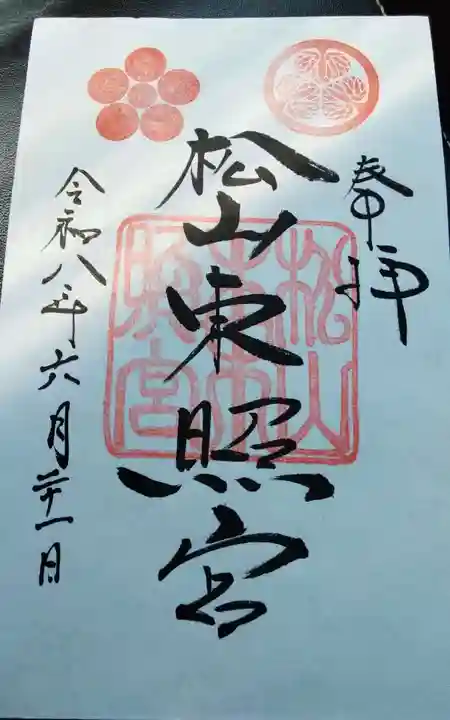 奉拝
松山東照宮
松山東照宮
令和八年六月二十一日